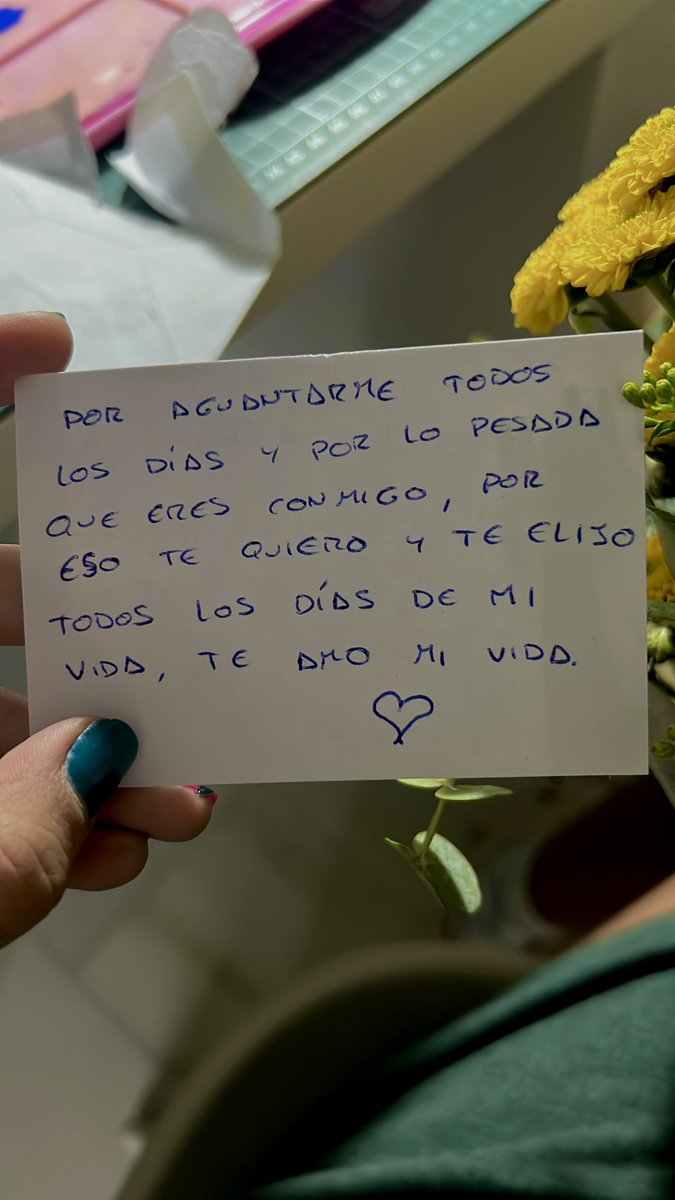 POR AGUANTARME TODOS
LOS DÍAS Y POR LO PESADA
QUE ERES CONMIGO, POR
ESO TE QUIERO Y TE ELIJO
TODOS LOS DÍAS DE MI
VIDA, TE AMO MI VIDA.